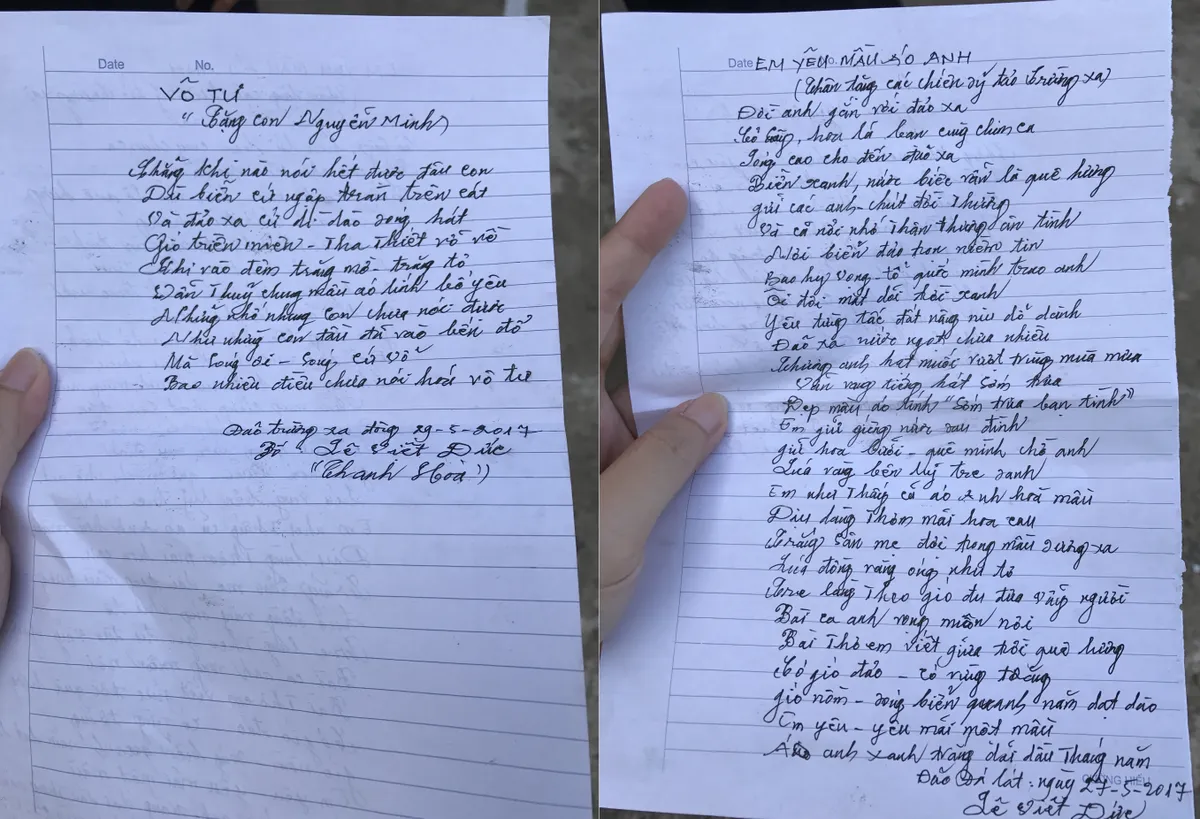 Date No.
VÔ TƯ
"Tặng con Nguyễn Minh)
Chẳng khi nào nói hết được đâu con
Dù biển cứ ngập tràn trên cát
Và đảo xa cứ dạt dào sóng hát
Gió triền miên - Tha Thiết vỗ về
Khi vào đêm trăng mờ - trăng tỏ
Vẫn Thuỷ chung mầu áo lính bố yêu
Những nhớ nhung con chưa nói được
Như những con tầu đi vào bến đỗ
Mà Sóng ơi - Sóng cứ vỗ
Bao nhiêu điều chưa nói hoá vô tư
Đảo trường xa đông 29-5-2017
Bố - Lê Viết Đức
"Thanh Hoá")
Date No.
EM YÊU MẦU ÁO ANH
(Thân tặng các chiến sỹ đảo trường xa)
Đời anh gắn với đảo xa
Cỏ cây, hoa lá bạn cùng chim ca
Sóng cao cho đến đảo xa
Biển xanh, nước biếc vẫn là quê hừng
gửi các anh chút đời Thường
Và cả nỗi nhớ Thân Thương ân tình
Nơi biển đảo trọn niềm tin
Bao hy vọng - tổ quốc mình trao anh
Ôi đôi mắt dõi trời xanh
Yêu từng tấc đất nâng niu dỗ dành
Đảo xa nước ngọt chưa nhiều
Thương anh hạt muối rướt trùng mưa mùa
Vẫn vang tiếng hát Sớm trưa
Đẹp mầu áo lính "Sớm trưa bạn tình"
Em giữ giếng nước sau đình
giữ hoa bưởi - quê mình chờ anh
Lúa vàng bên luỹ tre xanh
Em như Thấy cả áo anh hoà mầu
Dịu dàng Thơm mãi hoa cau
Trắng sân mẹ đợi trong mầu sương xa
Lúa đồng vàng óng như tơ
Tre làng Theo gió đu đưa vẫy người
Bài ca anh vọng muôn nơi
Bài Thơ em viết giữa trời quê hương
Có gió đảo - có rừng trăng
gió nồm - sóng biển quanh năm dạt dào
Em yêu - yêu mãi một mầu
Áo anh xanh trắng dãi dầu Tháng năm
Đảo Đá lát: ngày 27-5-2017
Lê Viết Đức